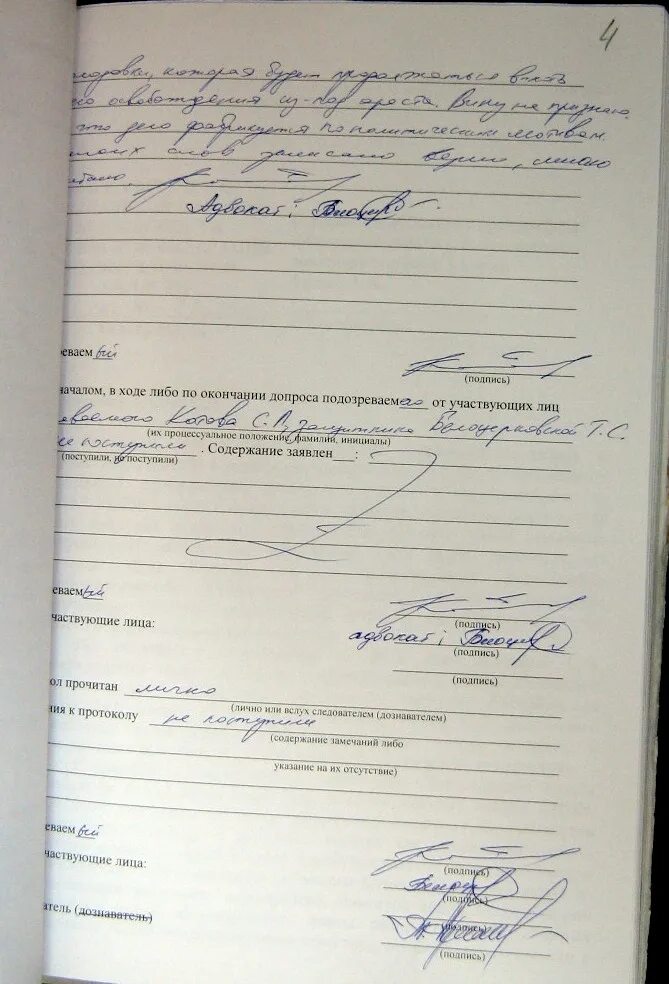 4
которая будет продолжаться вплоть
освобождения из-под ареста. Вину не признаю.
что дело фабрикуется по политическим мотивам
моих слов записано верно, мною
Адвокат:
реваемый
(подпись)
началом, в ходе либо по окончании допроса подозреваемого от участвующих лиц
еваемого Котова С.П., защитника Белоцерковской Т.С.
(их процессуальное положение, фамилии, инициалы)
не поступили . Содержание заявлен :
(поступили, не поступили)
еваемый
(подпись)
частвующие лица:
адвокат:
(подпись)
(подпись)
ол прочитан лично
(лично или вслух следователем (дознавателем)
ния к протоколу не поступили
(содержание замечаний либо
указание на их отсутствие)
еваемый
(подпись)
частвующие лица:
(подпись)
атель (дознаватель)
(подпись)
(подпись)